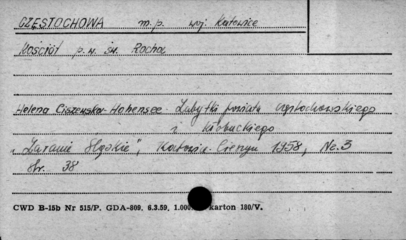 CZĘSTOCHOWA m.p. woj. Katowice
Kościół p.w. św. Rocha
Helena Ciszewska-Hohensee Zabytki powiatu częstochowskiego
i kłobuckiego
"Zaranie Śląskie", Katowice-Cieszyn 1958, No. 3
str. 38
CWD B-15b Nr 515/P. GDA-809. 6.3.59. 1.000. karton 180/V.